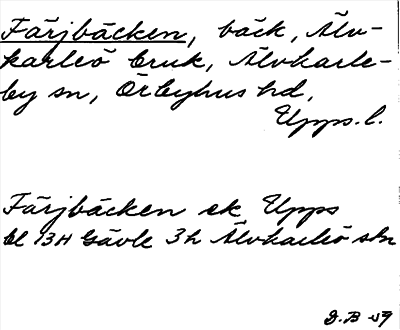 Färjbäcken, bäck, Älv-
karleö bruk, Älvkarle-
by sn, Örbyhus hd,
Upps. l.
Färjbäcken ek Upps
bl 13H Gävle 3h Älvkarleö skn
D.B -59